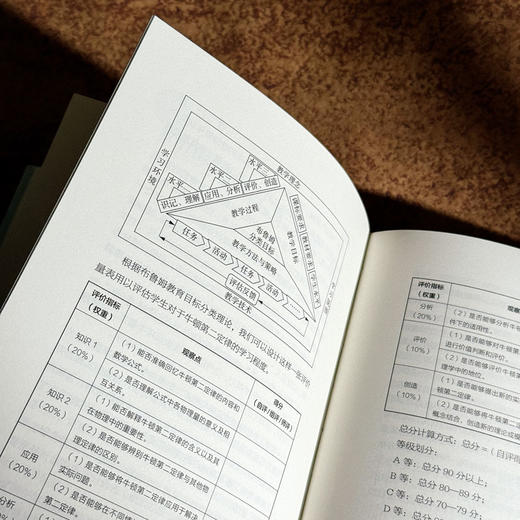 教学理念
学习环境
水平三
水平二
水平一
识记、理解
应用、分析
评价、创造
教学过程
布鲁姆
分类目标
教学目标
课标要求
教材要求
学生水平
任务
活动
任务
活动
教学方法与策略
评估反馈
教学技术
根据布鲁姆教育目标分类理论，我们可以设计这样一张评价
量表用以评估学生对于牛顿第二定律的学习程度。
评价指标
（权重）
观察点
得分
（自评/组评/师评）
知识1
（20%）
（1）能否准确回忆牛顿第二定律的内容和
数学公式。
（2）是否理解公式中各物理量的意义及相
互关系。
知识2
（20%）
（1）能否解释牛顿第二定律的含义以及其
在物理中的重要性。
（2）是否能够辨别牛顿第二定律与其他物
理定律的区别。
应用
（20%）
（1）是否能够将牛顿第二定律应用于解决
实际问题。
（2）是否能够在不同情
第二定律。
分析
（20%）
（1）是否能够
评价指标
（权重）
观察
分析
（20%）
（2）是否能够分析牛
件下的适用性。
评价
（10%）
（1）是否能够对牛顿第
进行价值判断和评价。
（2）是否能够评价牛顿
理学中的地位。
创造
（10%）
（1）是否能够提出新的实
顿第二定律。
（2）是否能够将牛顿第二
概念结合，创造新的理论或模
总分计算方式：总分=（自评得
等级划分：
A等：总分90分以上；
B等：总分80—89分；
C等：总分70—79分；
D等：总分